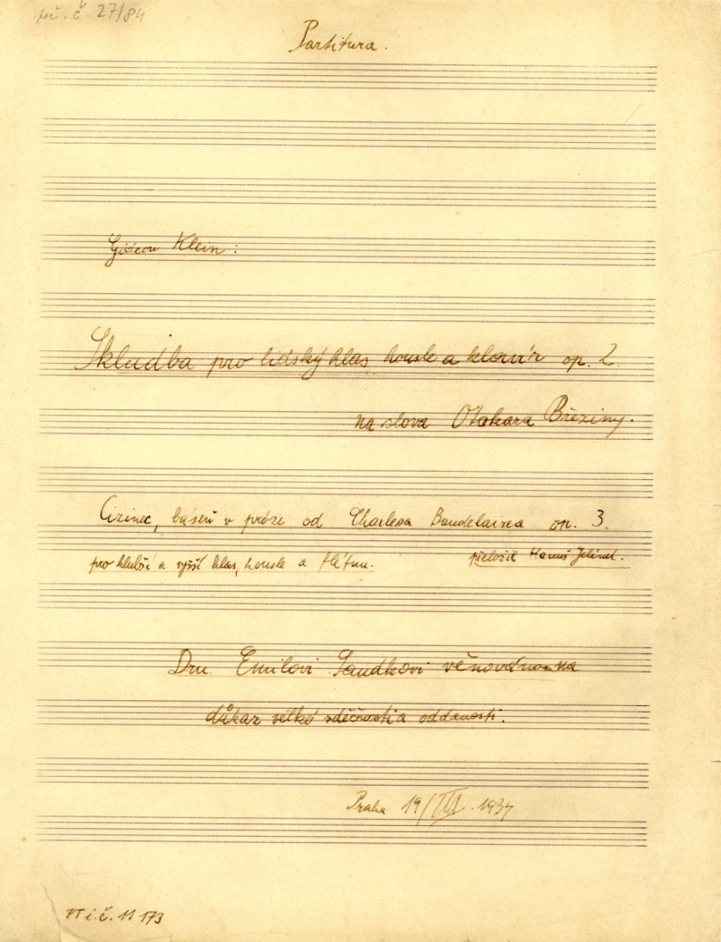 př. č. 27/84
Partitura.
Gideon Klein:
Skladba pro lidský hlas, housle a klavír op. 2
na slova Otokara Březiny.
Cizinec, báseň v próze od Charlesa Baudelairea op. 3.
pro hlubší a vyšší hlas, housle a flétnu. přeložil Hanuš Jelínek.
Dru Emilovi věnováno na
důkaz velké vděčnosti a oddanosti.
Praha 19/III. 193
PT i. č. 11 173